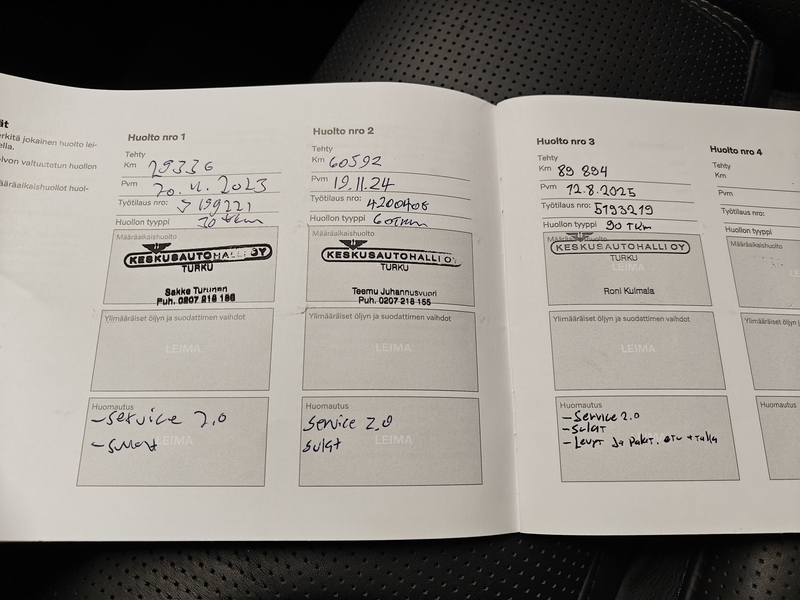 it
erkitä jokainen huolto lei-
ella.
lvon valtuutetun huollon
ääräaikaishuollot huol-
Huolto nro 1
Tehty
Km 29336
Pvm 20.11.2023
Työtilaus nro: 199221
Huollon tyyppi 30 tkm
Määräaikaishuolto
KESKUSAUTOHALLI OY
TURKU
Sakke Turunen
Puh. 0207 218 186
Ylimääräiset öljyn ja suodattimen vaihdot
LEIMA
Huomautus
-Service 2.0
-Sulat
LEIMA
Huolto nro 2
Tehty
Km 60592
Pvm 19.11.24
Työtilaus nro: 4200408
Huollon tyyppi 60Tkm
Määräaikaishuolto
KESKUSAUTOHALLI OY
TURKU
Teemu Juhannusvuori
Puh. 0207 218 155
Ylimääräiset öljyn ja suodattimen vaihdot
LEIMA
Huomautus
Service 2.0
Sulat
LEIMA
Huolto nro 3
Tehty
Km 89 894
Pvm 12.8.2025
Työtilaus nro: 5193219
Huollon tyyppi 90 Tkm
Määräaikaishuolto
KESKUSAUTOHALLI OY
TURKU
LEIMA
Roni Kulmala
Ylimääräiset öljyn ja suodattimen vaihdot
LEIMA
Huomautus
-Service 2.0
-Sulat
-Levyt ja Palat. etu + taka
LEIMA
Huolto nro 4
Tehty
Km
Pvm
Työtilaus nro:
Huollon tyyppi
Määräaikaishuolto
Ylimääräiset
Huomautus